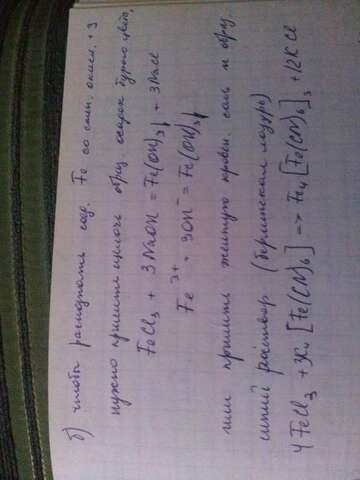 б) чтобы распознать соед. Fe со степ. окисл. +3
нужно прилить щелочь образ. осадок бурого цвета.
FeCl₃ + 3NaOH = Fe(OH)₃↓ + 3NaCl
Fe³⁺ + 3OH⁻ = Fe(OH)₃↓
или прилить желтую кровян. соль и образ.
синий раствор (берлинская лазурь)
4FeCl₃ + 3K₄[Fe(CN)₆] => Fe₄[Fe(CN)₆]₃ + 12KCl